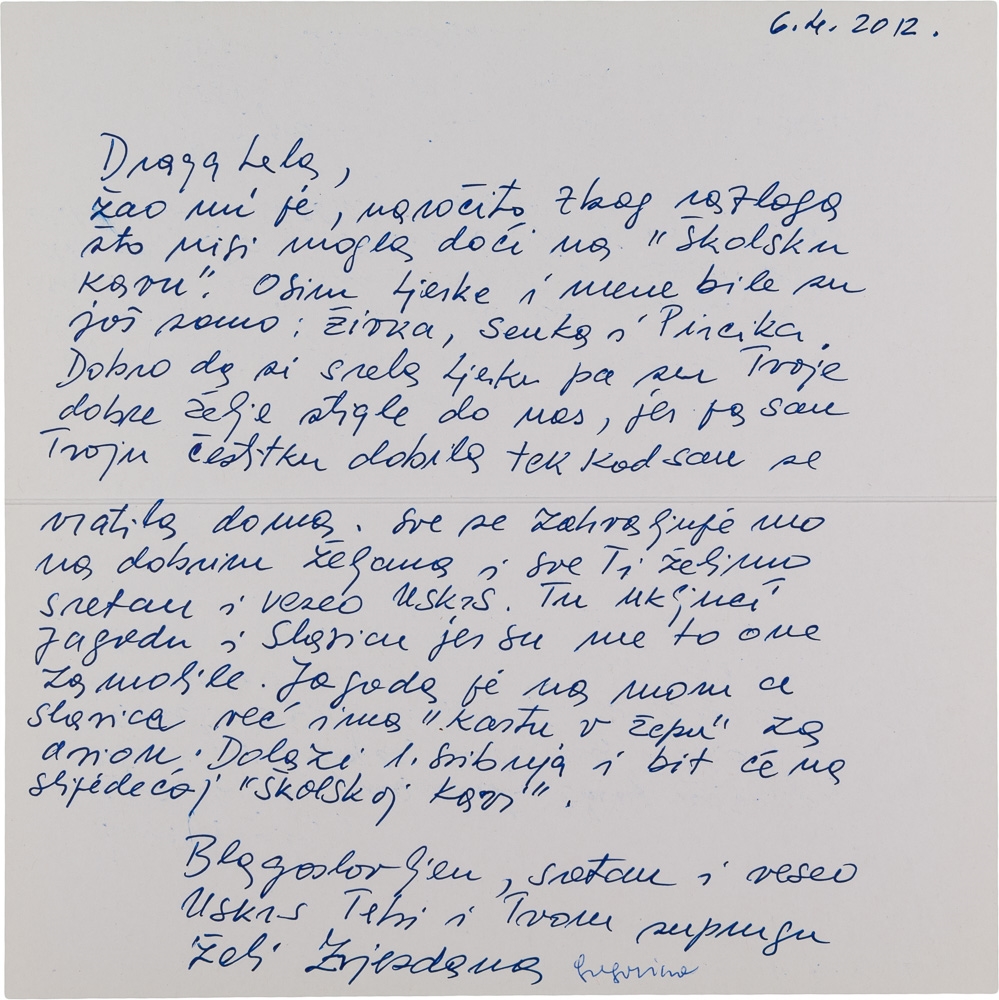 6.4. 2012.
Draga Lela,
žao mi je, naročito zbog razloga
što nisi mogla doći na "školsku
kavu". Osim Ljerke i mene bile su
još samo: Živka, Senka i Pircika.
Dobro da si srela Ljerku pa su Tvoje
dobre želje stigle do nas, jer ja sam
Tvoju čestitku dobila tek kad sam se
vratila doma. Sve se zahvaljujemo
na dobrim željama i sve Ti želimo
sretan i veseo Uskrs. Tu uključi
Jagodu i Slavicu jer su me to one
zamolile. Jagoda je na moru a
Slavica već ima "kartu v žepu" za
avion. Dolazi 1. svibnja i bit će na
slijedećoj "školskoj kavi".
Blagoslovljen, sretan i veseo
Uskrs Tebi i Tvom suprugu
želi Zvjezdana